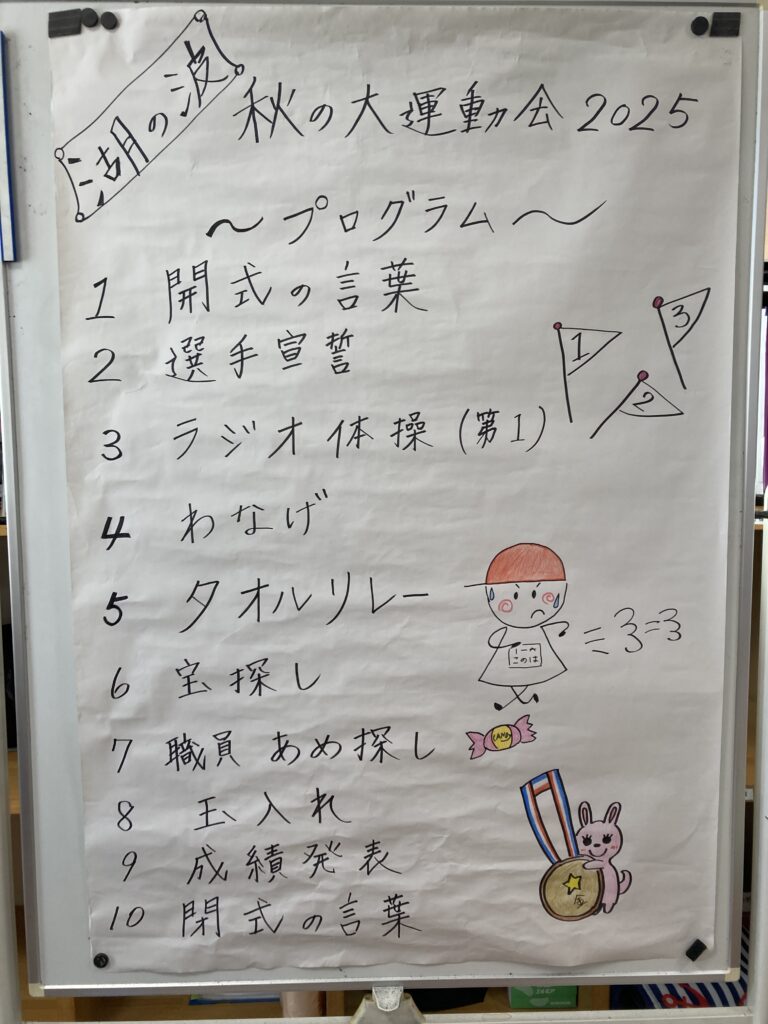 湖の波
秋の大運動会2025
～プログラム～
1 開式の言葉
2 選手宣誓
3 ラジオ体操(第1)
4 わなげ
5 タオルリレー
6 宝探し
7 職員 あめ探し
8 玉入れ
9 成績発表
10 閉式の言葉
1
2
3
このは
CANDY